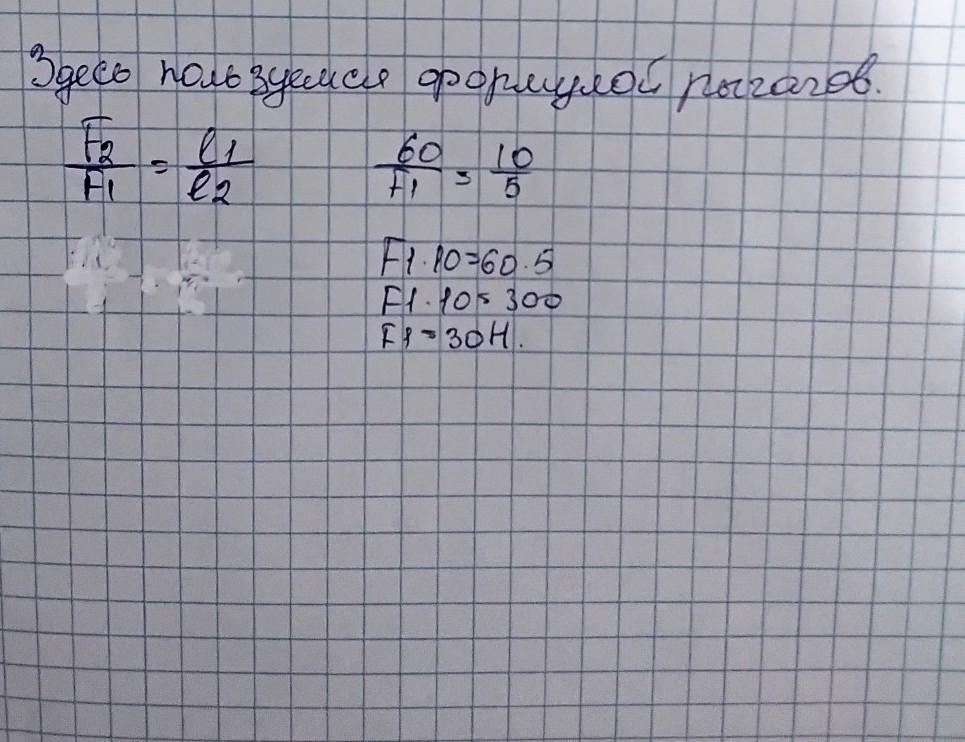 Здесь пользуемся формулой рычагов.
F2/F1 = l1/l2 60/F1 = 10/5
F1·10=60·5
F1·10=300
F1=30Н.